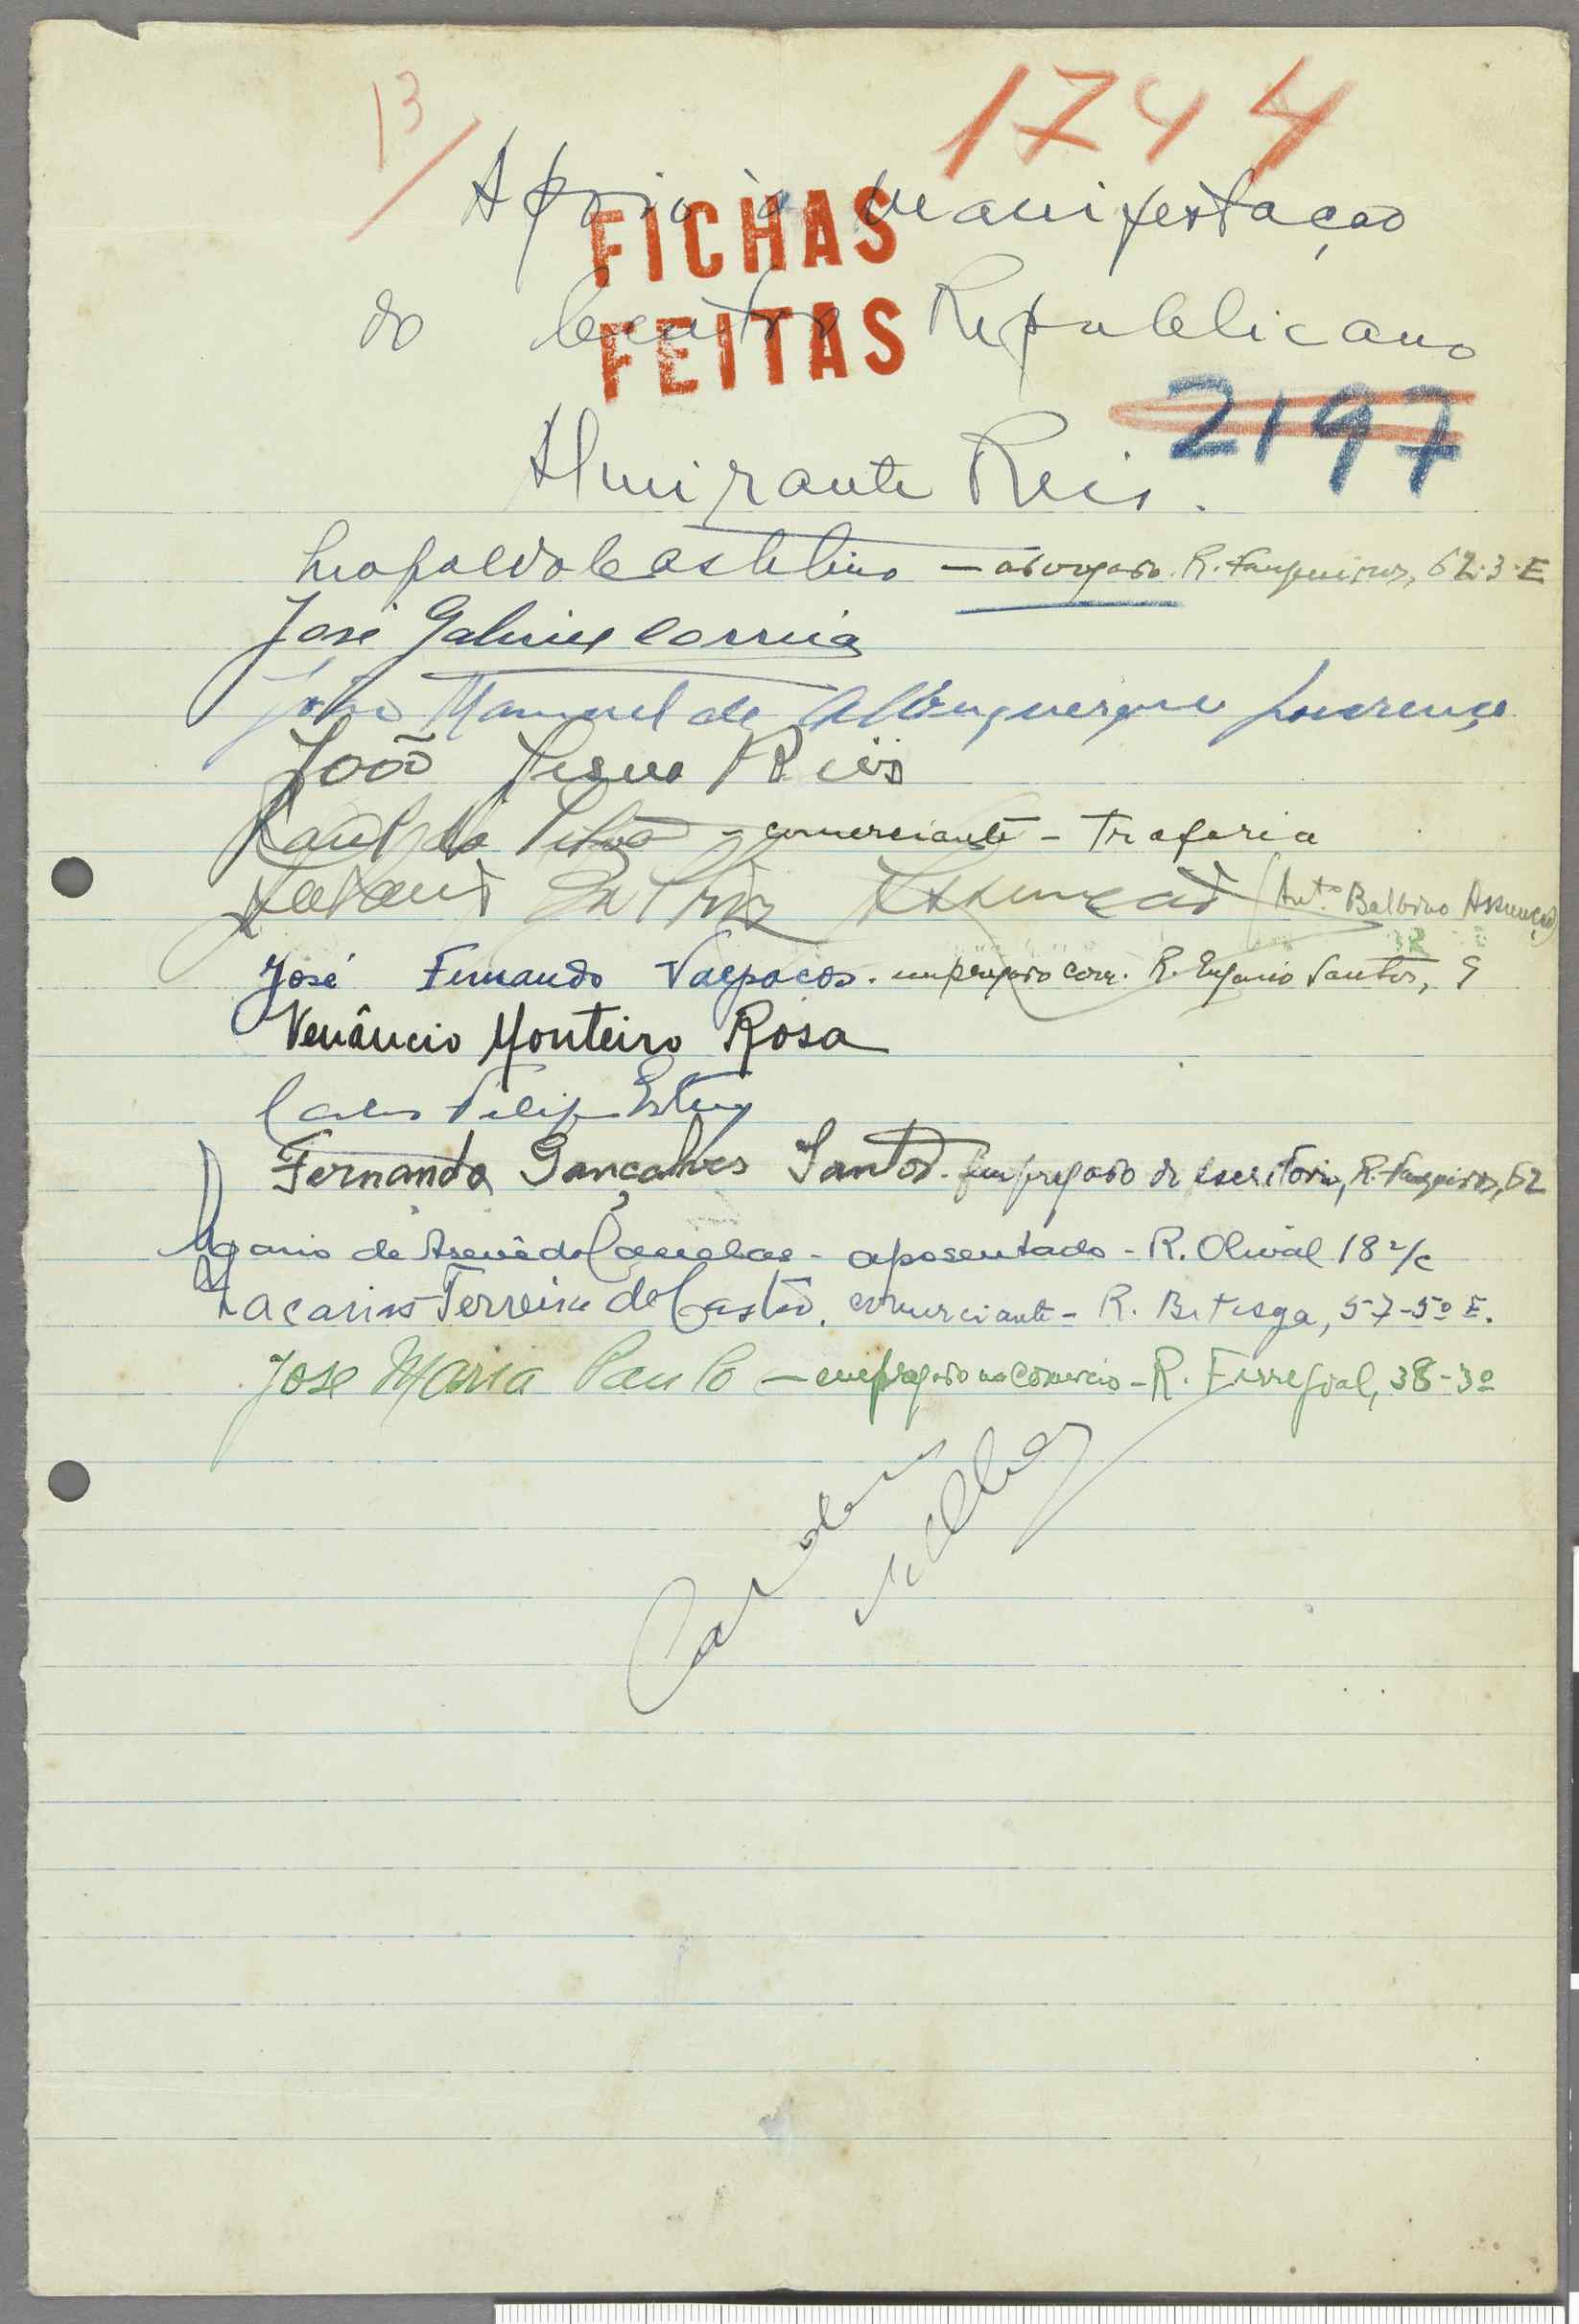 13/
1744
Apoio à Manifestação
FICHAS
do Centro Republicano
FEITAS
2197
Almirante Reis.
Leopoldo Castelino — advogado. R. Fanqueiros, 62-3-E
José Gabriel Correia
João Manuel de Albuquerque Lourenço
João Jesus Reis
Raul da Silva - comerciante - Trafaria
Assunção (Antº Balbino Assunção)
José Fernando Valpaços. empregado com. R. Eugénio Santos, 9
Venâncio Monteiro Rosa
Carlos Filipe
Fernando Gonçalves Santos. Empregado de escritório, R. Fanqueiros, 62
Mario de Azevêdo - aposentado - R. Olival 18 r/c
Zacarias Ferreira de Castro. comerciante - R. Betesga, 57-5º E.
Jose Maria Paulo — empregado no comercio - R. Ferregial, 38-3º